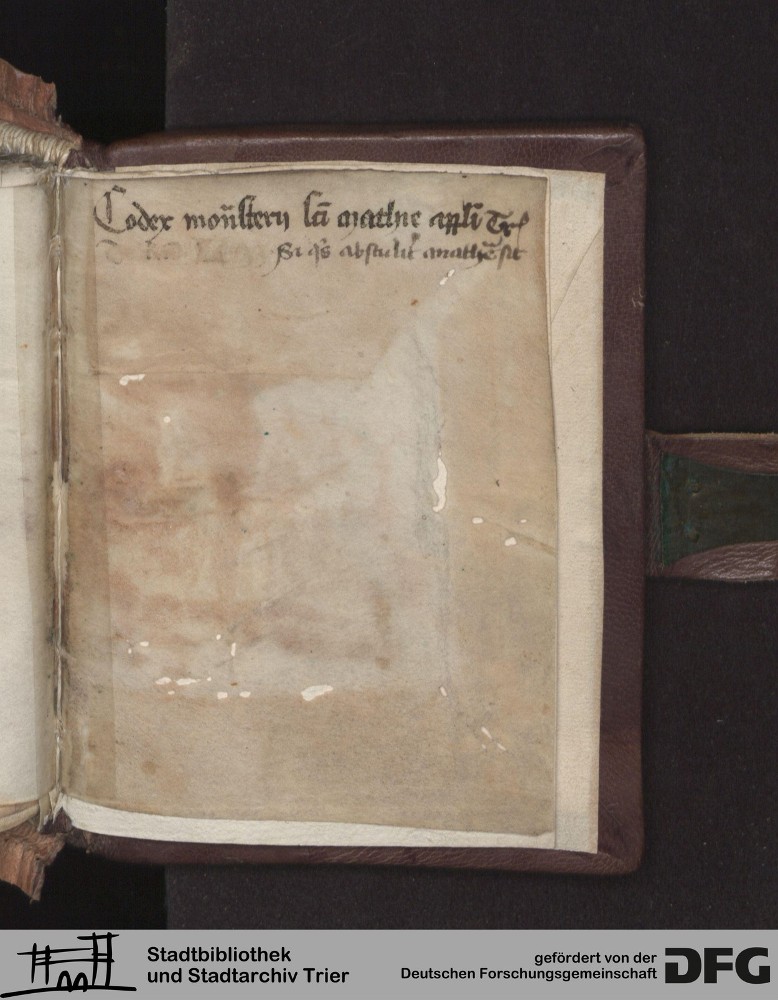 Codex mon̄sterij sc̄i mathie appl̄i Tr̄
Si q̄s abstulit̄ anathē sit
Stadtbibliothek
und Stadtarchiv Trier
gefördert von der
Deutschen Forschungsgemeinschaft
DFG